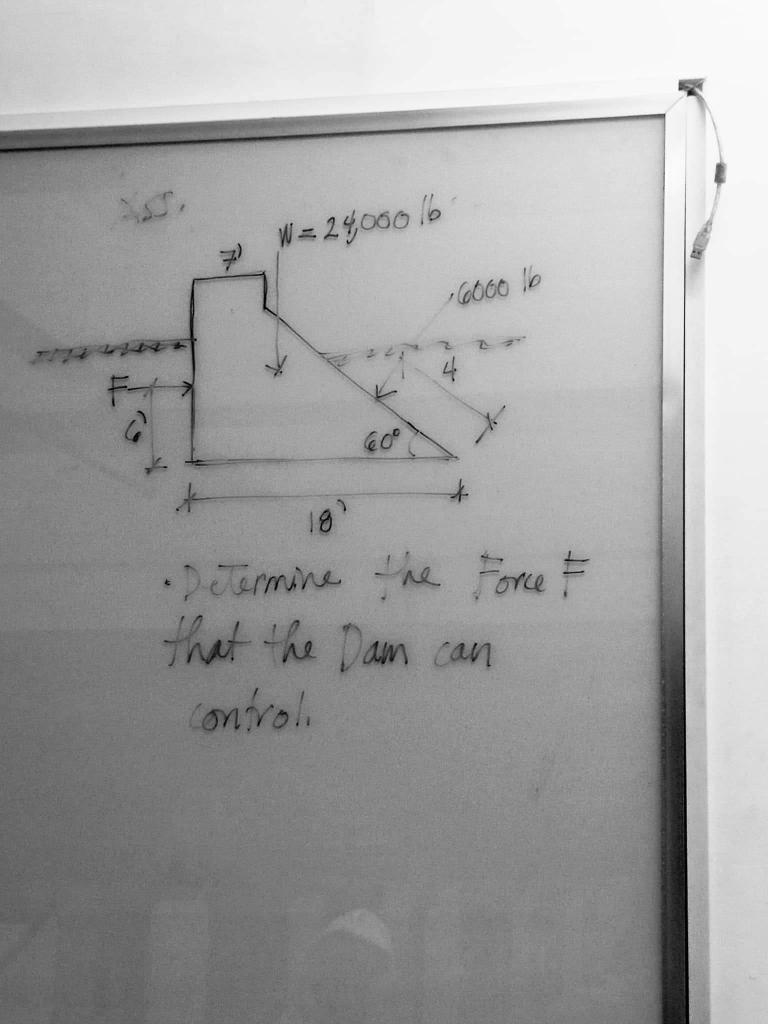 W = 24,000 lb
7'
6000 lb
F
4
6'
60°
18'
• Determine the Force F
that the Dam can
control.